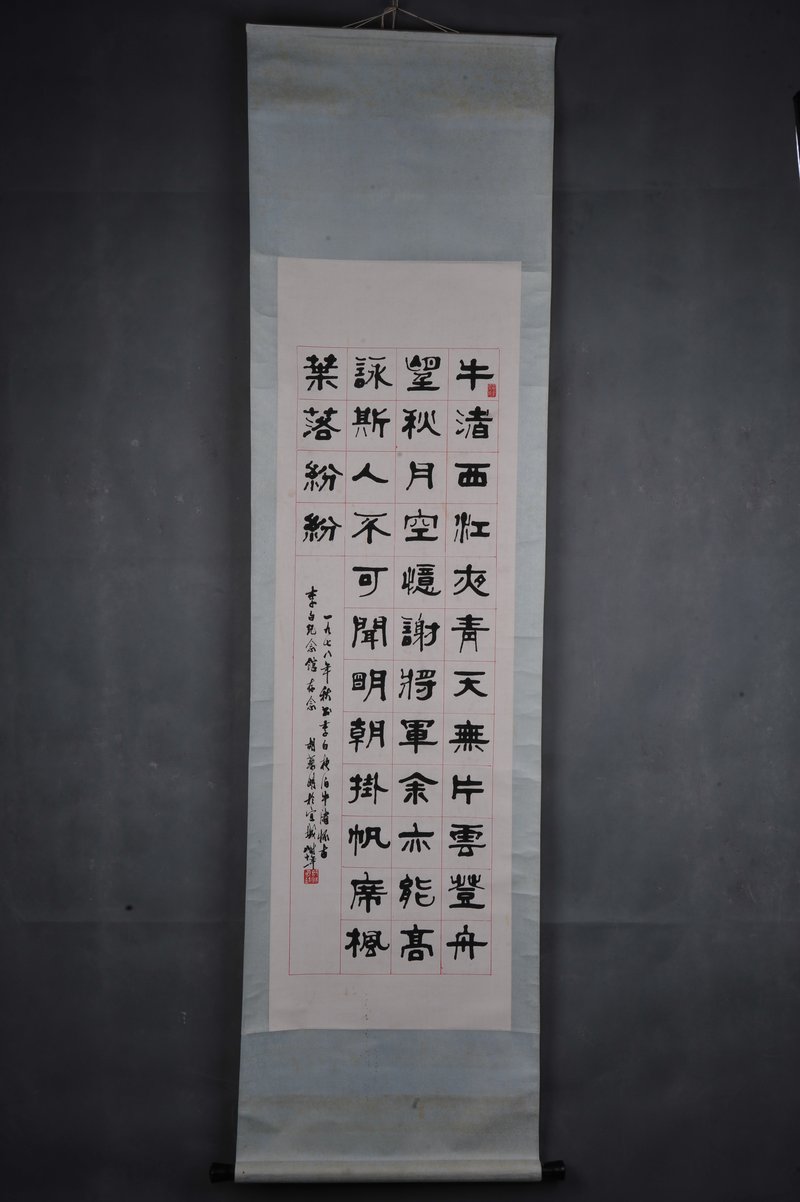 牛渚西江夜青天無片雲登舟
望秋月空憶謝將軍余亦能高
詠斯人不可聞明朝掛帆席楓
葉落紛紛
一九七八年秋書李白夜泊牛渚懷古
李白纪念馆存念
於宣城